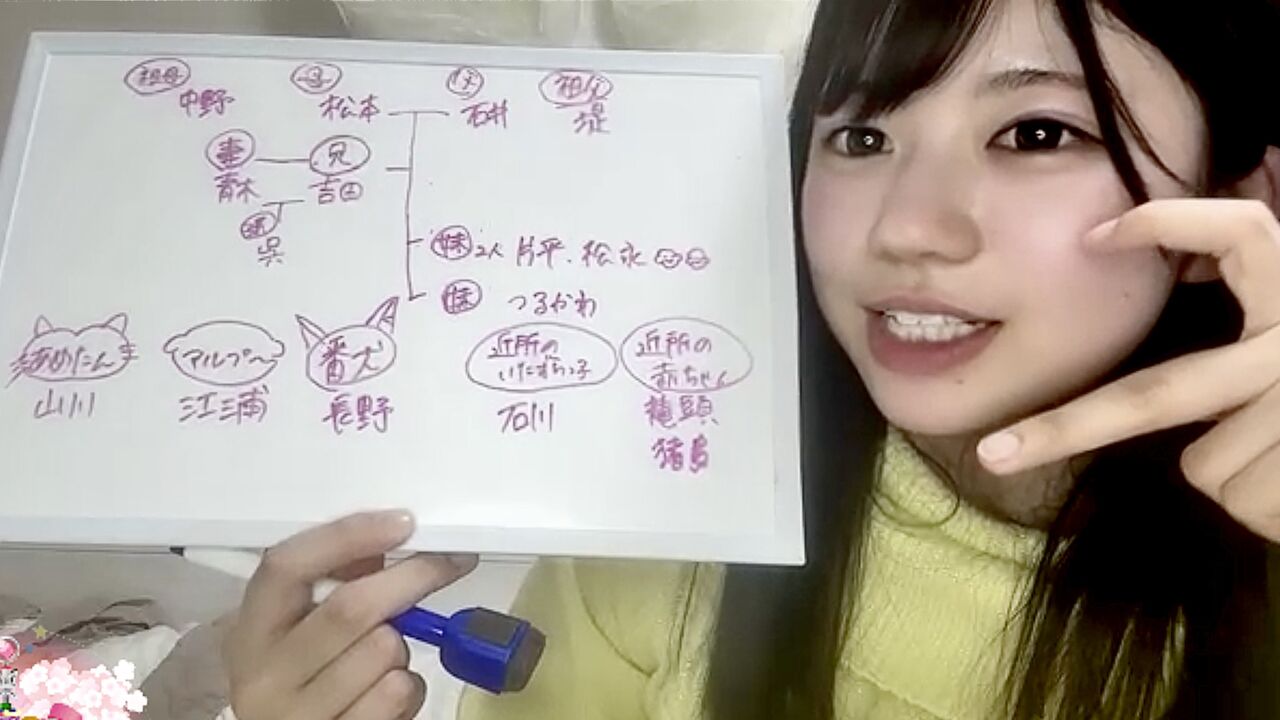 祖母 母 父 祖父
中野 松本 石井 堤
妻 兄
青木 吉田
呉
妹 2人 片平、松永
妹 つるかわ
マルプ〜 番犬 近所の いたずらっ子 近所の 赤ちゃん
山川 江浦 長野 石川 龍頭
猪島